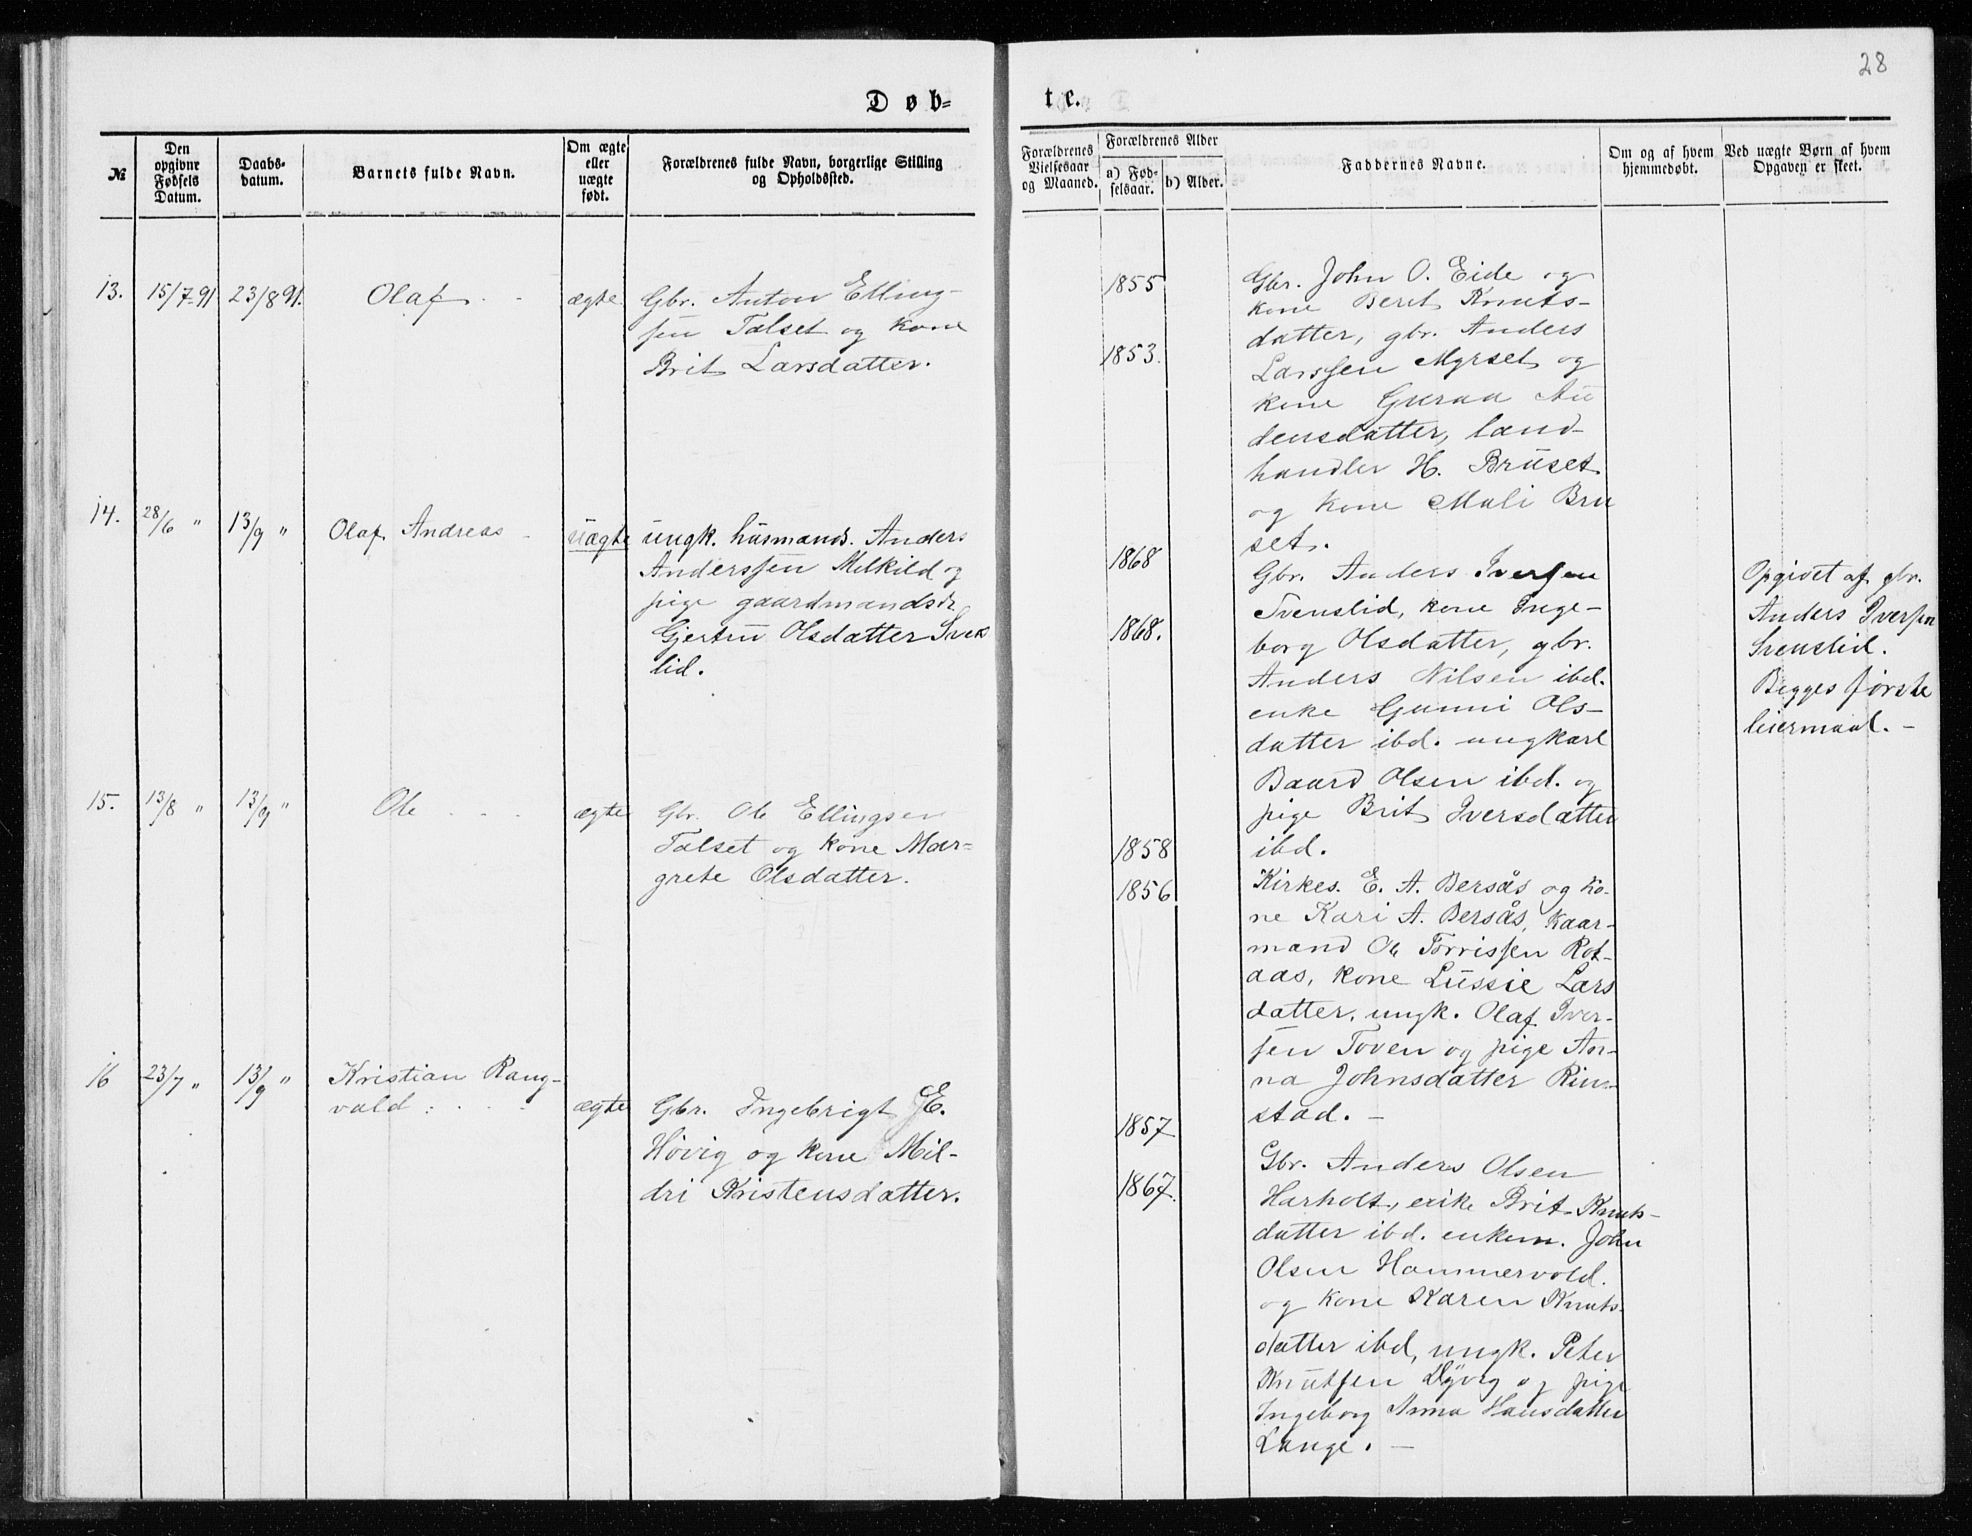 28
Døb=
te.
№
Den opgivne Fødsels Datum.
Daabs-datum.
Barnets fulde Navn.
Om ægte eller uægte født.
Forældrenes fulde Navn, borgerlige Stilling og Opholdssted.
Forældrenes Vielsesaar og Maaned.
Forældrenes Alder
a) Fød-selsaar.
b) Alder.
Faddernes Navne.
Om og af hvem hjemmedøbt.
Ved uægte Børn af hvem Opgaven er skeet.
13. 15/7-91 23/8 91. Olaf ægte Gbr. Anton Elling-
sen Talset og kone
Brit Larsdatter.
1855
1853.
Gbr. John O. Eide og
kone Beret Knuts-
datter, gbr. Anders
Larssen Myrset og
kone Guraa Au
densdatter, land-
handler H. Bruset
og kone Mali Bru
set.
14. 28/6 " 13/9 " Olaf Andreas - uægte ungk. husmands. Anders
Anderssen Melkild og
pige gaardmandsd.
Gjertru Olsdatter Svens
lid.
1868
1868.
Gbr. Anders Iversen
Svenslid, kone Inge-
borg Olsdatter, gbr.
Anders Nilsen ibd.
enke Gunni Ols-
datter ibd. ungkarl
Baard Olsen ibd. og
pige Brit Iversdatter
ibd.
Opgivet af gbr.
Anders Iversen
Svenslid.
Begges første
leiermaal. -
15. 13/8 " 13/9 " Ole ægte Gbr. Ole Ellingsen
Talset og kone Mar=
grete Olsdatter.
1858
1856
Kirkes. E. A. Bersås og ko-
ne Kari A. Bersås, kaar-
mand Ole Torrissen Rot-
aas, kone Lussie Lars
datter, ungk. Olaf Iver-
sen Toven og pige An-
na Johnsdatter Rin-
stad. -
16 23/7 " 13/9 " Kristian Rang-
vald ægte Gbr. Ingebrigt E.
Høvig og kone Mil-
dri Kristensdatter.
1857
1867.
Gbr. Anders Olsen
Harholt, enke Brit Knuts-
datter ibd. enkem. John
Olsen Hammervold.
og kone Karen Knuts-
datter ibd, ungk. Peter
Knutsen Dyvig og pige
Ingeborg Anna Hansdatter
Lange. -